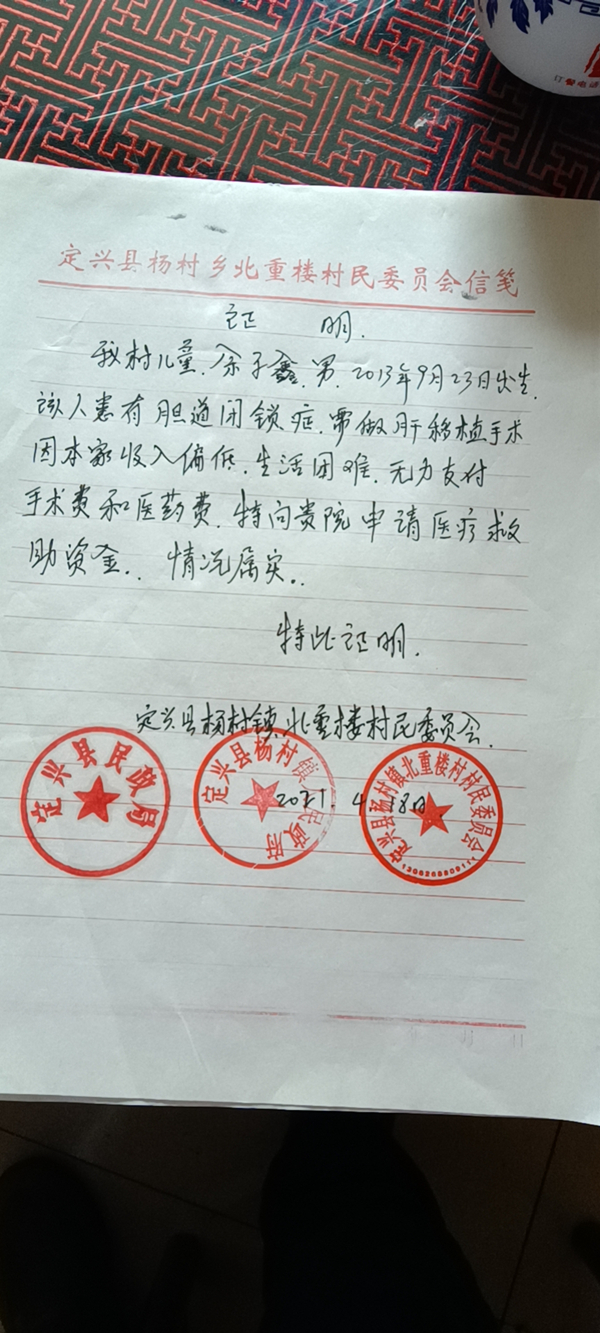 订餐电话
定兴县杨村乡北重楼村民委员会信笺
证 明.
我村儿童.余子鑫.男.2013年9月23日出生.
该人患有胆道闭锁症.需做肝移植手术
因本家收入偏低.生活困难.无力支付
手术费和医药费.特向贵院申请医疗救
助资金.. 情况属实..
特此证明.
定兴县杨村镇北重楼村民委员会.
2021.4.18日.
定兴县民政局
定兴县杨村镇民政府
定兴县杨村镇北重楼村村民委员会